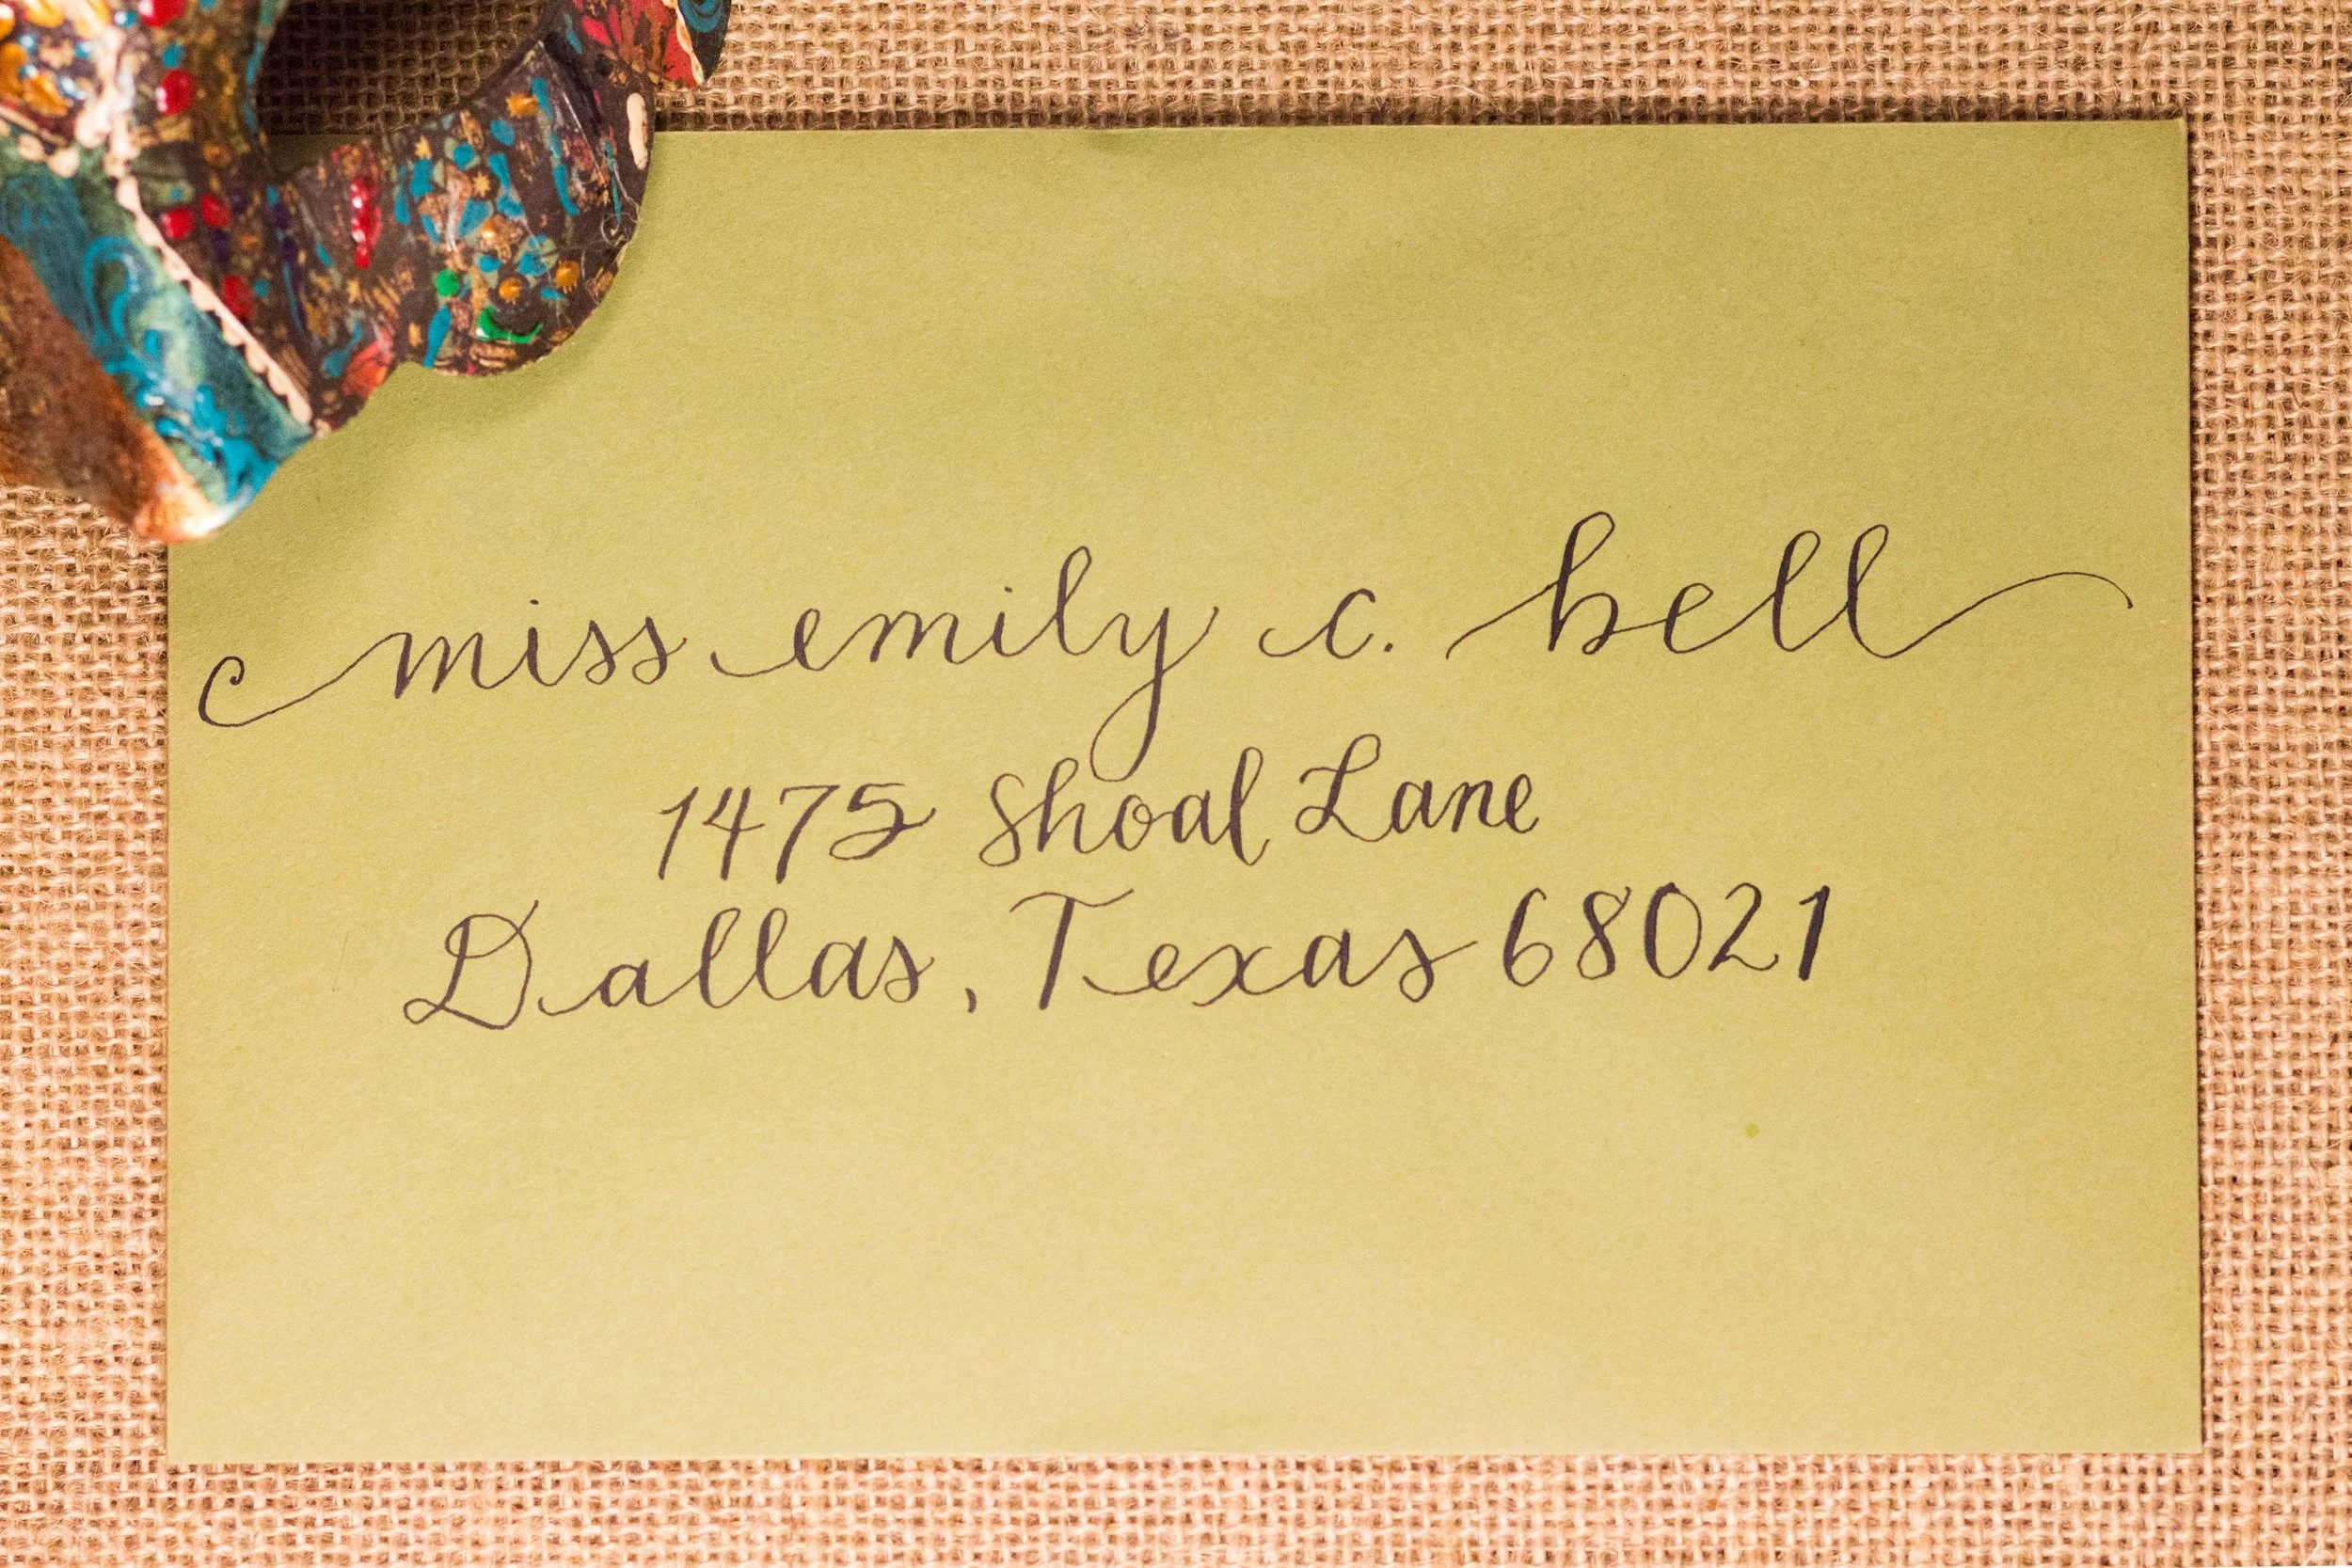 miss emily c. bell
1475 Shoal Lane
Dallas, Texas 68021